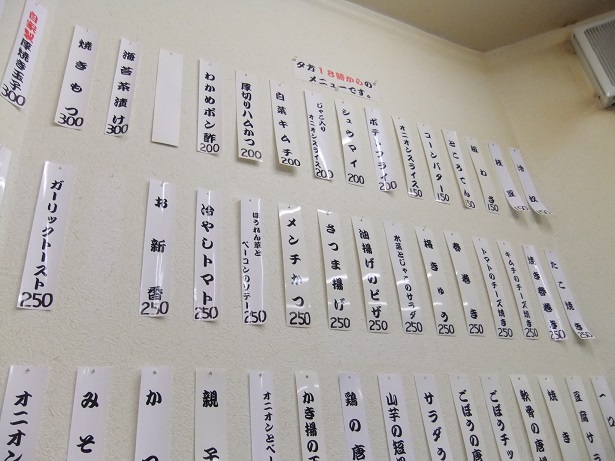 夕方18時からの
メニューです。
自家製厚焼き玉子
300
焼きもつ
300
海苔茶漬け
300
わかめポン酢
200
厚切りハムかつ
200
白菜キムチ
200
じゃこ入り
オニオンスライス
200
シュウマイ
200
ポテトフライ
200
オニオンスライス
150
コーンバター
150
ところてん
150
板わさ
150
枝豆
150
冷奴
ガーリックトースト
250
お新香
250
冷やしトマト
250
ほうれん草と
ベーコンのソテー
250
メンチかつ
250
さつま揚げ
250
油揚げのピザ
250
水菜とじゃこのサラダ
250
梅きゅう
250
春巻き
250
トマトのチーズ焼き
250
キムチのチーズ焼き
250
焼き春巻き
250
たこ焼き
250
オニオン
みそ
かつ
親子
オニオンとベー
かき揚の
鶏の唐
山芋の短
サラダう
ごぼうの唐
ごぼうチッ
軟骨の唐
焼き
豆腐サラ